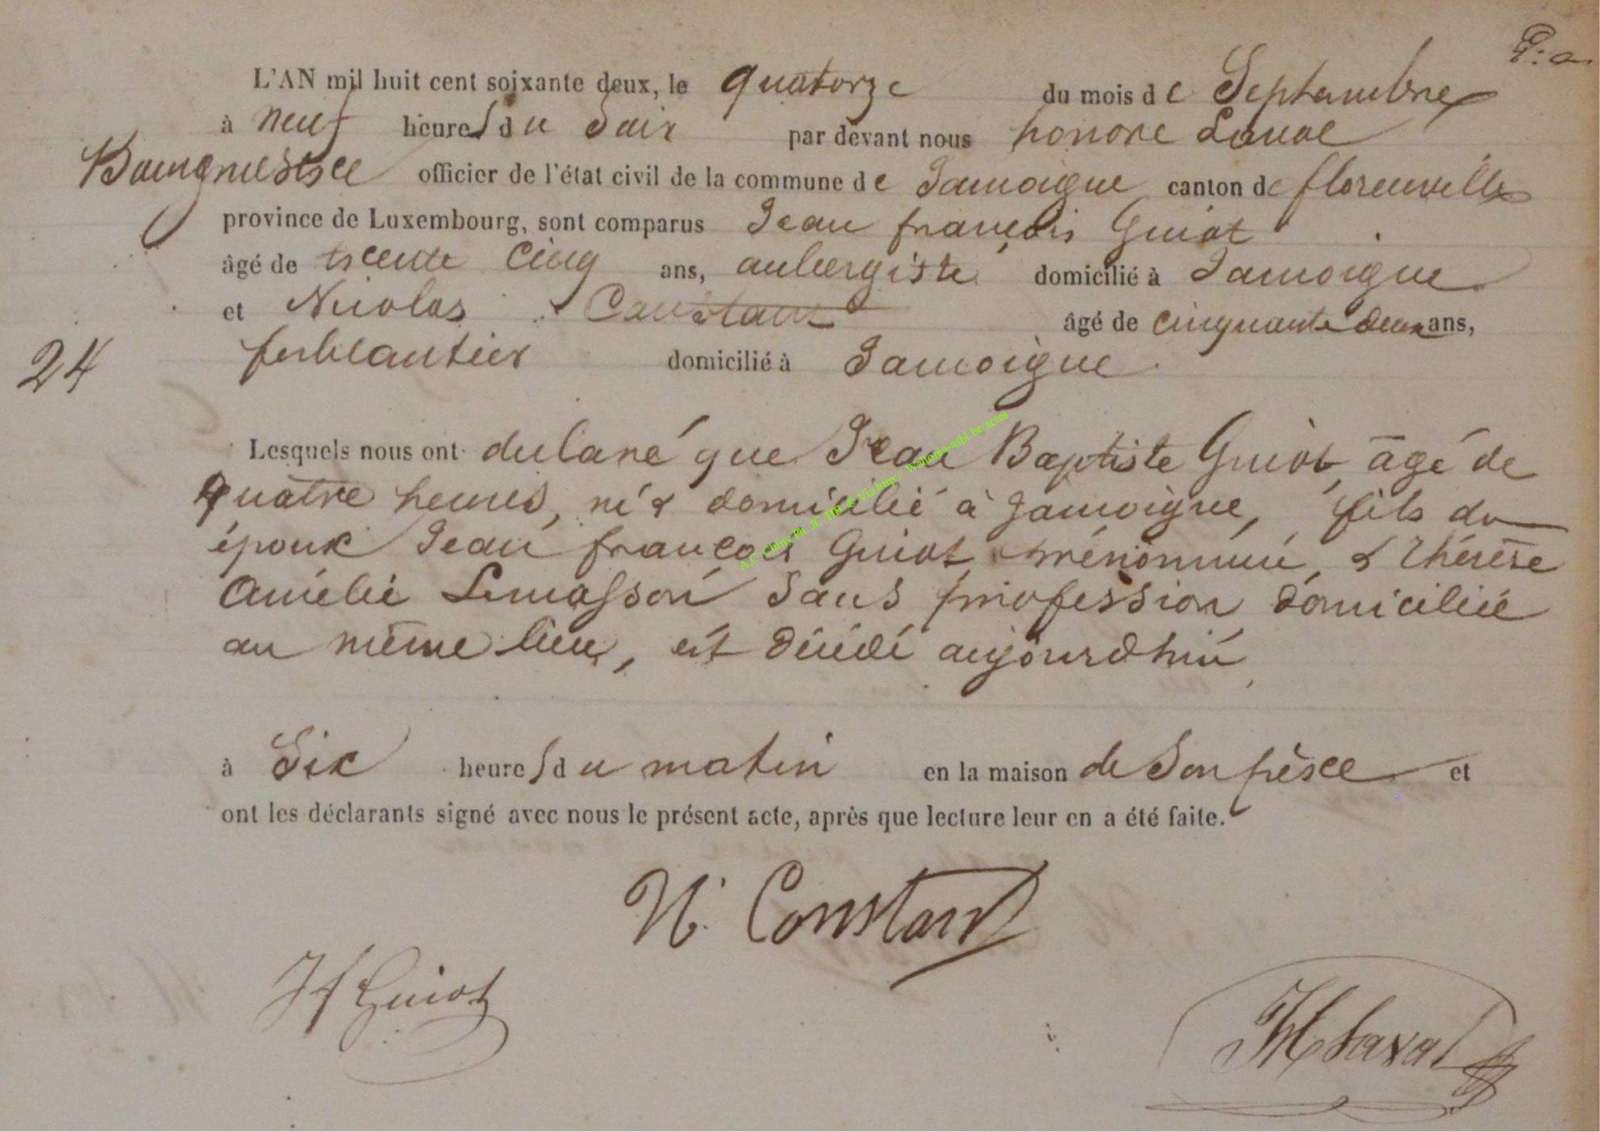 L'AN mil huit cent soixante deux, le quatorze du mois de Septembre
à neuf heures du Soir par devant nous honoré Laval
Bourgmestre officier de l'état civil de la commune de Jamoigne canton de florenville
province de Luxembourg, sont comparus Jean françois Guiot
âgé de trente cinq ans, aubergiste domicilié à Jamoigne
et Nicolas Constant âgé de cinquante deux ans,
24 ferblantier domicilié à Jamoigne
Lesquels nous ont declaré que Jean Baptiste Guiot, âgé de
quatre heures, né & domicilié à Jamoigne, fils du
époux Jean françois Guiot prénommé, & Thérèse
Amélie Lemasson Sans profession domiciliée
au même lieu, est décédé aujourdhui
à Six heures du matin en la maison de Son père et
ont les déclarants signé avec nous le présent acte, après que lecture leur en a été faite.
N. Constant
Jf Guiot
H Laval